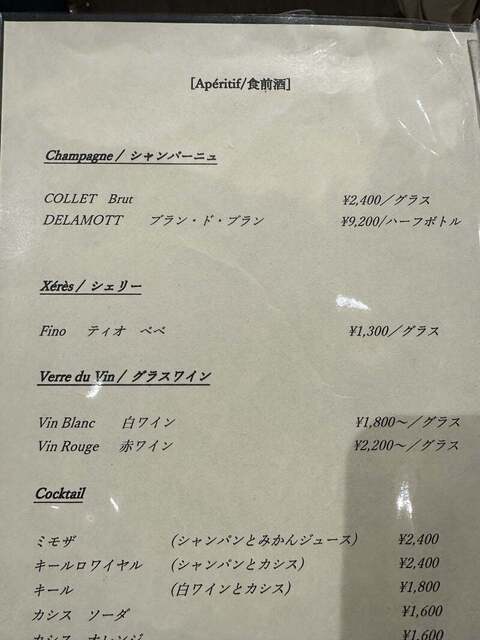 [Apéritif/食前酒]
Champagne / シャンパーニュ
COLLET Brut ¥2,400／グラス
DELAMOTT ブラン・ド・ブラン ¥9,200/ハーフボトル
Xérès / シェリー
Fino ティオ ペペ ¥1,300／グラス
Verre du Vin / グラスワイン
Vin Blanc 白ワイン ¥1,800～／グラス
Vin Rouge 赤ワイン ¥2,200～／グラス
Cocktail
ミモザ (シャンパンとみかんジュース) ¥2,400
キールロワイヤル (シャンパンとカシス) ¥2,400
キール (白ワインとカシス) ¥1,800
カシス ソーダ ¥1,600
カシス オレンジ ¥1,600